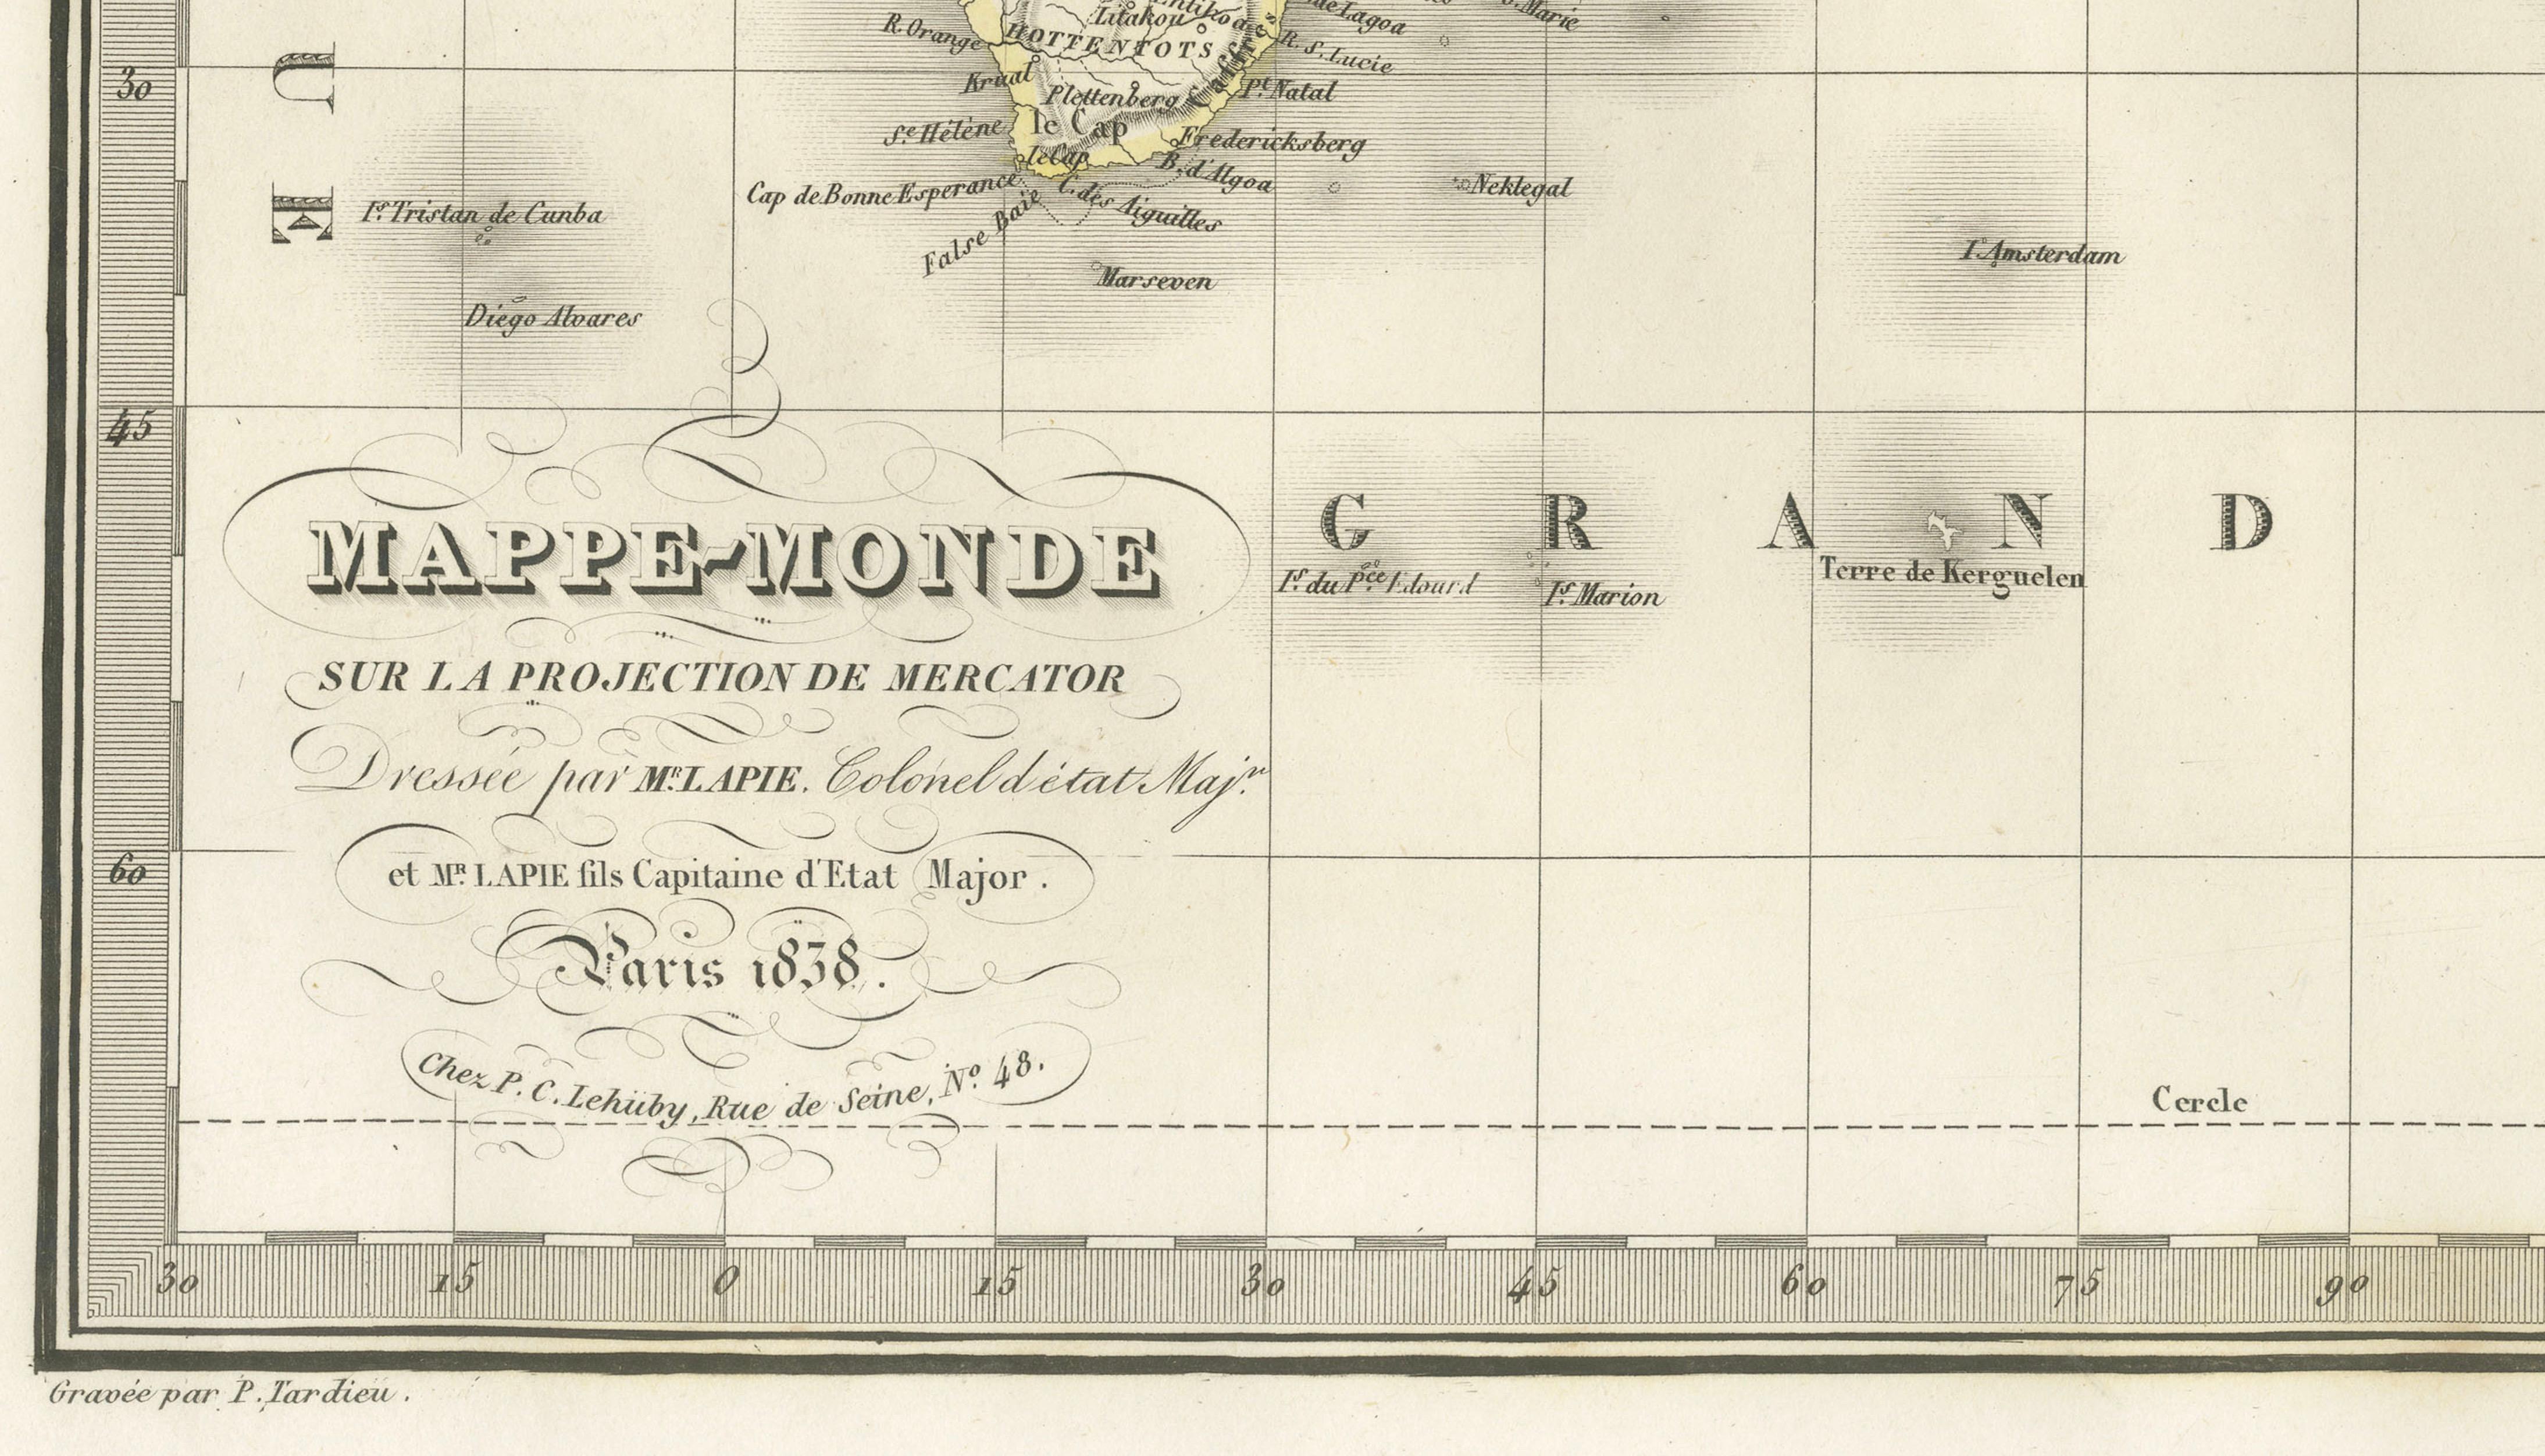 Litakou
de Lagoa
S. Marie
R. Orange
HOTTENTOTS
Caffres
R. S. Lucie
30
U
Krual
Plettenberg
Pt. Natal
Se. Hélène
le Cap
Fredericksberg
le Cap
B. d'Algoa
Cap de Bonne Esperance
C. des Aiguilles
Neklegal
E
Is. Tristan de Cunba
False Baie
I. Amsterdam
Marseven
Diego Alvares
45
GRAND
MAPPE-MONDE
Is. du Pce. Edourd
Is. Marion
Terre de Kerguelen
SUR LA PROJECTION DE MERCATOR
Dressée par MR. LAPIE. Colonel d'état Majr.
60
et MR. LAPIE fils Capitaine d'Etat Major.
Paris 1838.
Chez P. C. Lehüby, Rue de Seine, No. 48.
Cercle
30 15 0 15 30 45 60 75 90
Gravée par P. Tardieu.